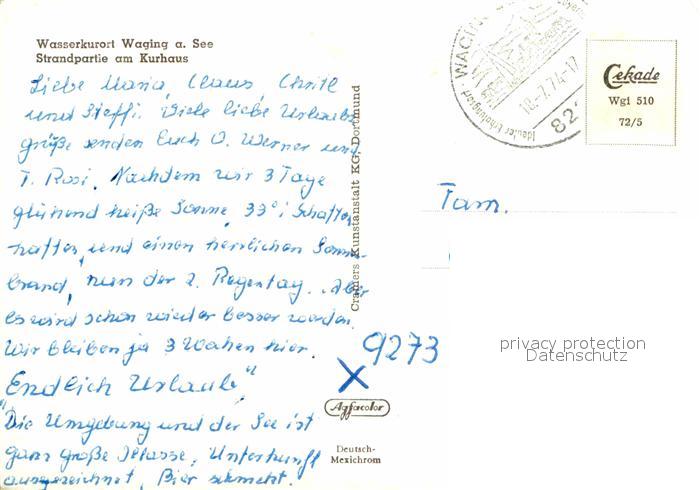 Wasserkurort Waging a. See
Strandpartie am Kurhaus
Liebe Maria, Claus, Christl
und Steffi. Viele liebe Urlaubs
grüße senden Euch O. Werner und
T. Rosi. Nachdem wir 3 Tage
glühend heiße Sonne, 33° i Schatten
hatten, und einen herrlichen Sonnen
brand, nun der 2. Regentag. Aber
es wird schon wieder besser werden.
Wir bleiben ja 3 Wochen hier.
Endlich Urlaub"
"Die Umgebung und der See ist
ganz große Klasse, Unterkunft
ausgezeichnet, Bier schmeckt.
Cramers Kunstanstalt KG, Dortmund
X 9273
Agfacolor
Deutsch-
Mexichrom
WAGING
Idealer Erholungsort
18.-7.74-17
822
Cekade
Wgi 510
72/5
Fam.
privacy protection
Datenschutz